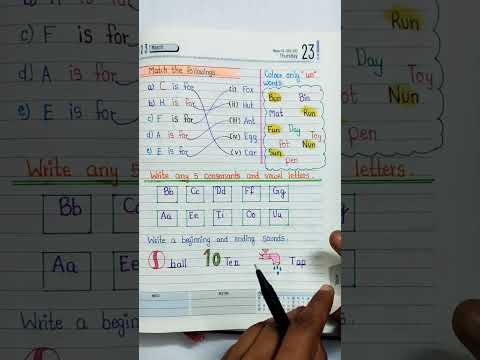 23 March
Thursday 23
Match the followings
a) C is for
b) H is for
c) F is for
d) A is for
e) E is for
(i) Fox
(ii) Hut
(iii) Ant
(iv) Egg
(v) Car
Colour only "un" words.
Bun Bin
Mat Run
Fun Day Toy
Pot Nun
Sun pen
Write any 5 consonants and vowel letters.
Bb Cc Dd Ff Gg
Aa Ee Ii Oo Uu
Write a beginning and ending sounds.
ball 10 Ten Tap
c) F is for
d) A is for
e) E is for
Bb
Aa Ee
Write a beginn
Run
Day
Toy
Nun
pen
letters.